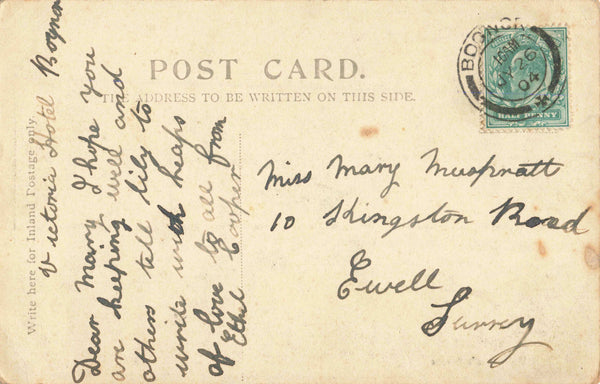 POST CARD.
THE ADDRESS TO BE WRITTEN ON THIS SIDE.
Write here for Inland Postage only.
Victoria Hotel Bognor
Dear Mary I hope you
are keeping well and
others tell lily to
write with heaps
of love to all from
Ethel Cooper
BOGNOR
MY 26
04
HALF PENNY
Miss Mary Muspratt
10 Kingston Road
Ewell
Surrey